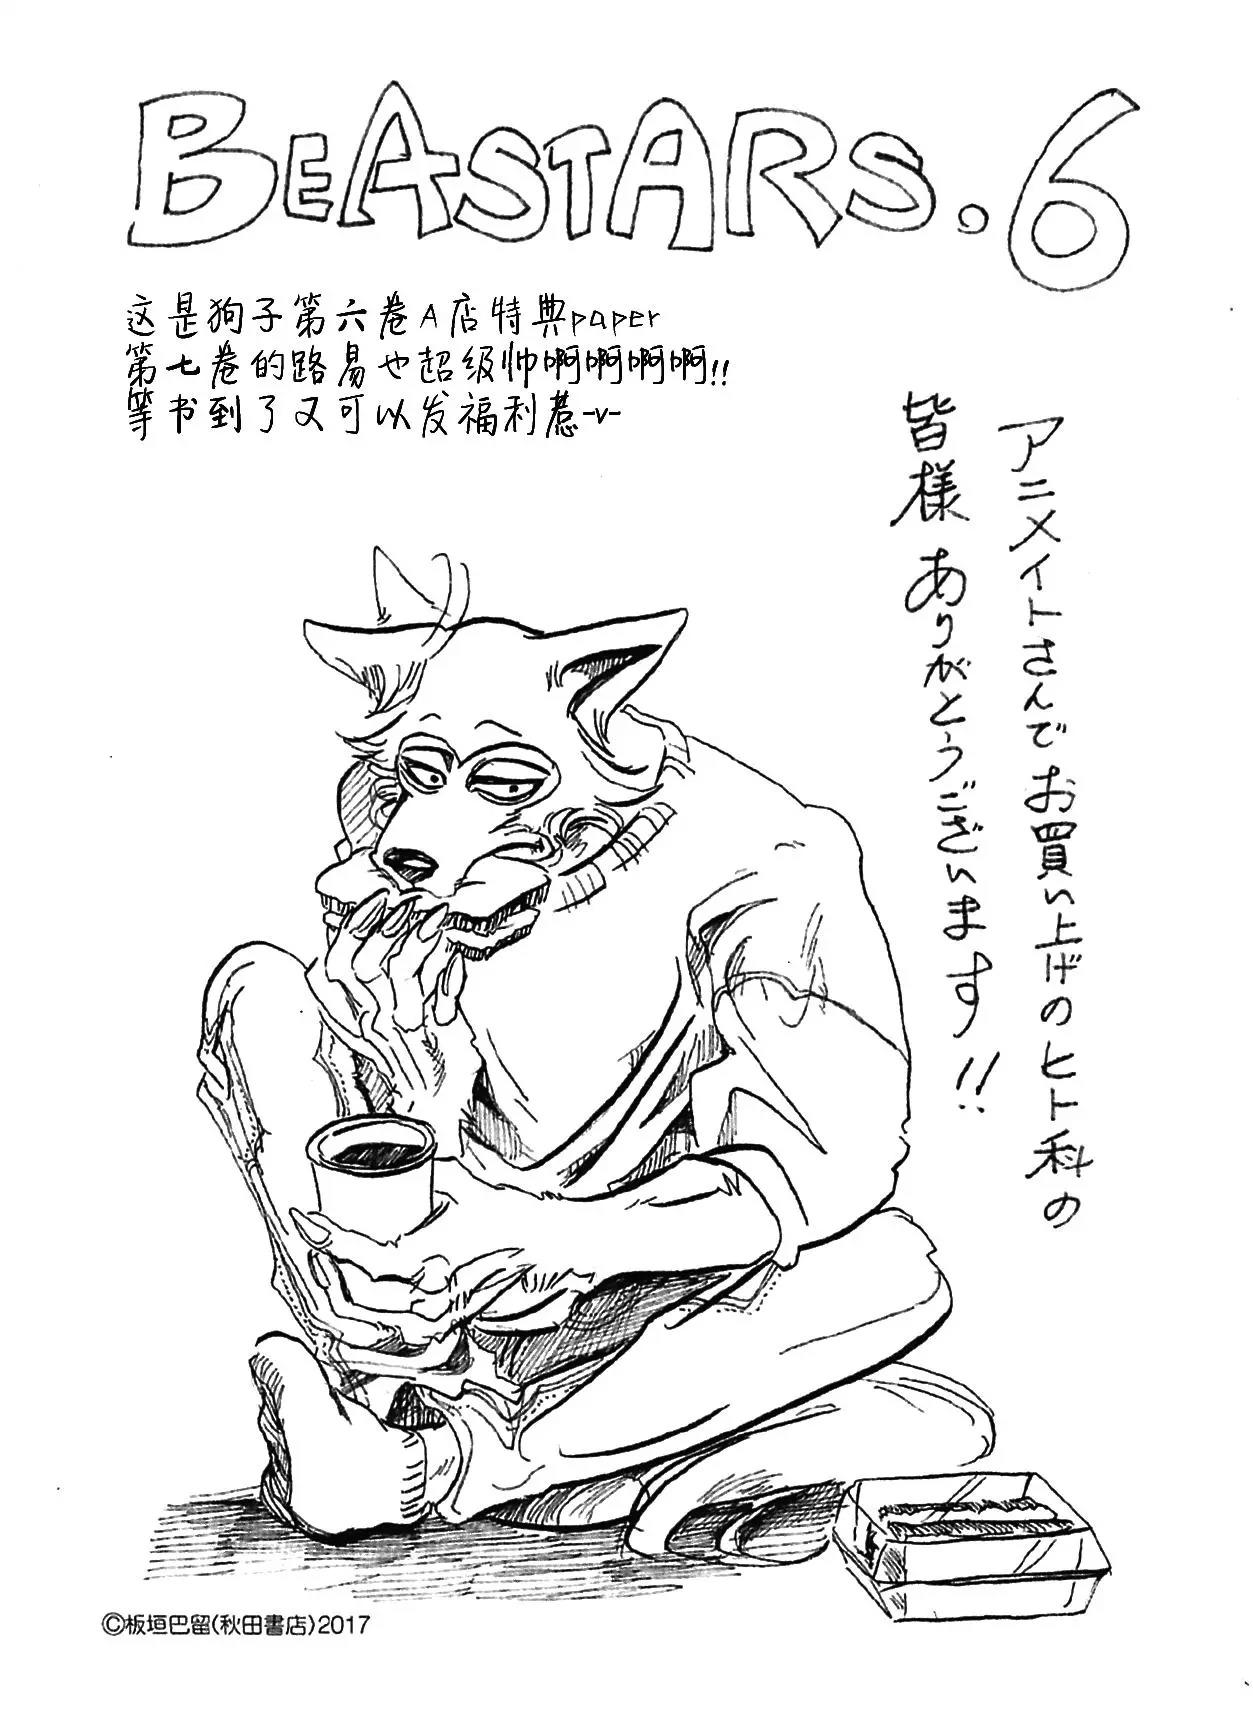 BEASTARS.6
这是狗子第六卷A店特典paper
第七卷的路易也超级帅啊啊啊啊!!
等书到了又可以发福利惹-v-
アニメイトさんでお買い上げのヒト科の
皆様ありがとうございます!!
©板垣巴留(秋田書店)2017